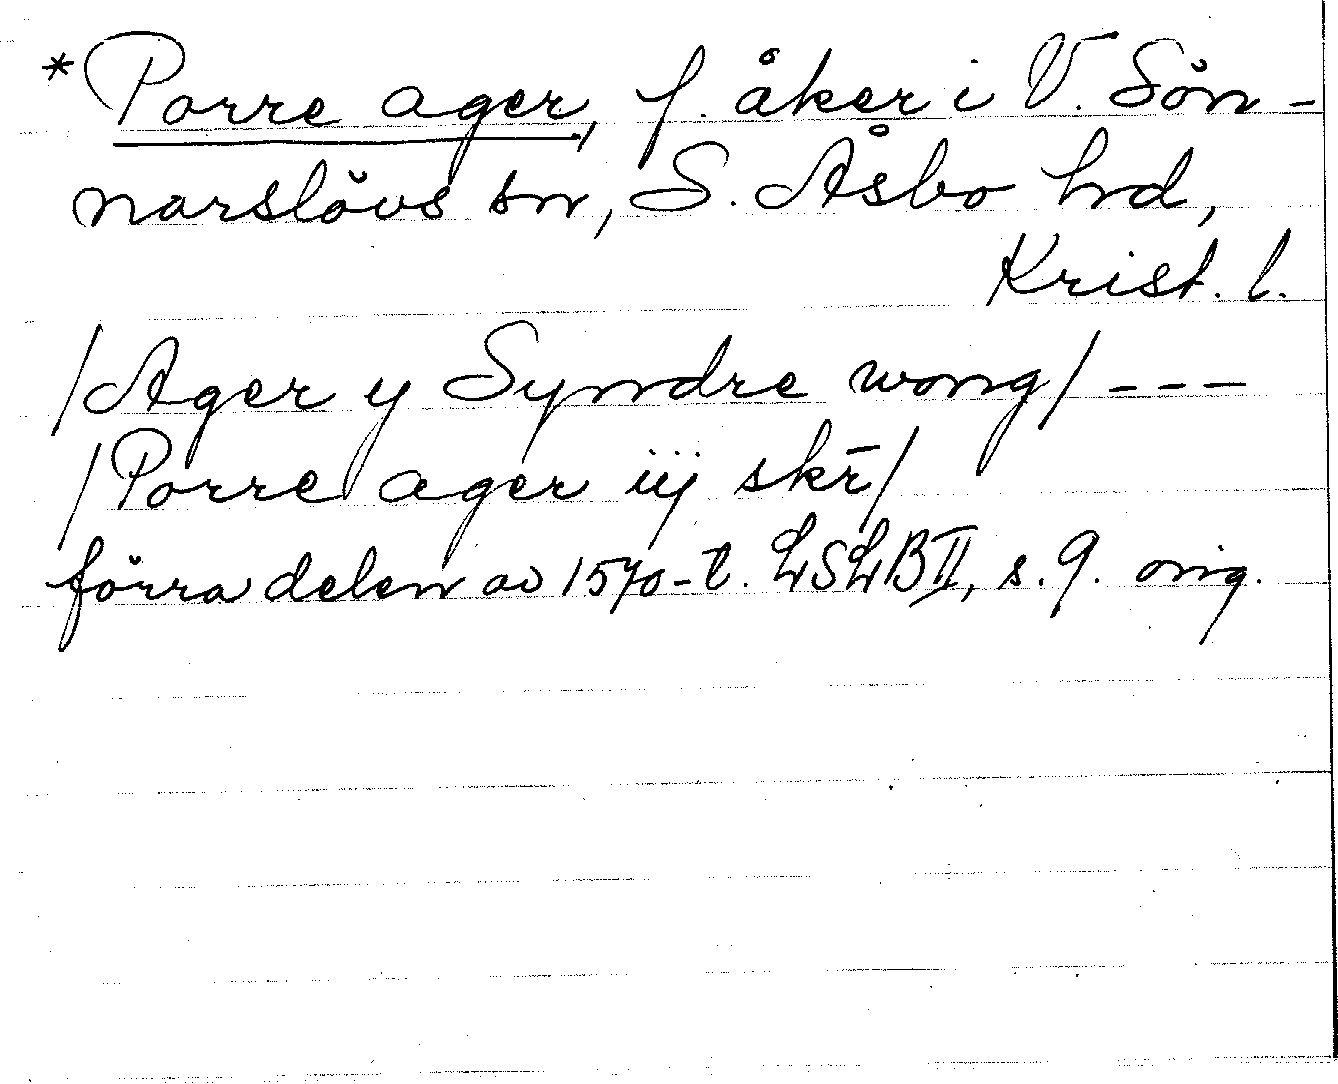 *Porre ager, f. åker i V. Sön-
narslövs sn, S. Åsbo hd,
Krist. l.
/Ager y Syndre wong/ ---
/Porre ager iij skr̄/
förra delen av 1570-t. LSLB II, s. 9. orig.